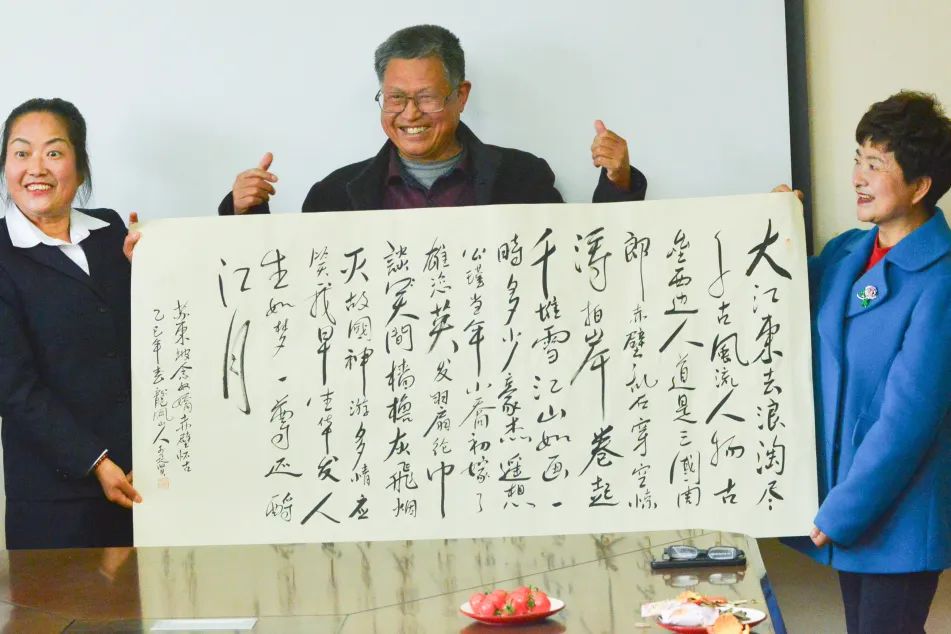 大江東去浪淘尽
千古風流人物古
垒西边人道是三國周
郎赤壁乱石穿空惊
濤拍岸卷起
千堆雪江山如画一
時多少豪杰遥想
公瑾当年小喬初嫁了
雄姿英发羽扇纶巾
談笑間檣櫓灰飛烟
灭故國神游多情应
笑我早生华发人
生如梦一尊还酹
江月
苏東坡念奴嬌赤壁怀古
乙巳年 龍岡山人